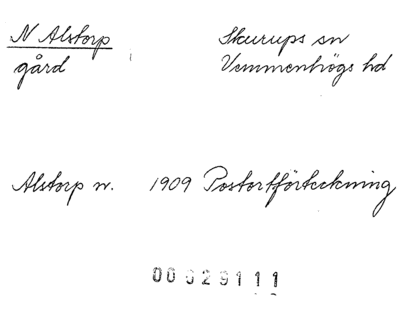 N Alstorp Skurups sn
gård Vemmenhögs hd
Alstorp n. 1909 Postortförteckning
00029111